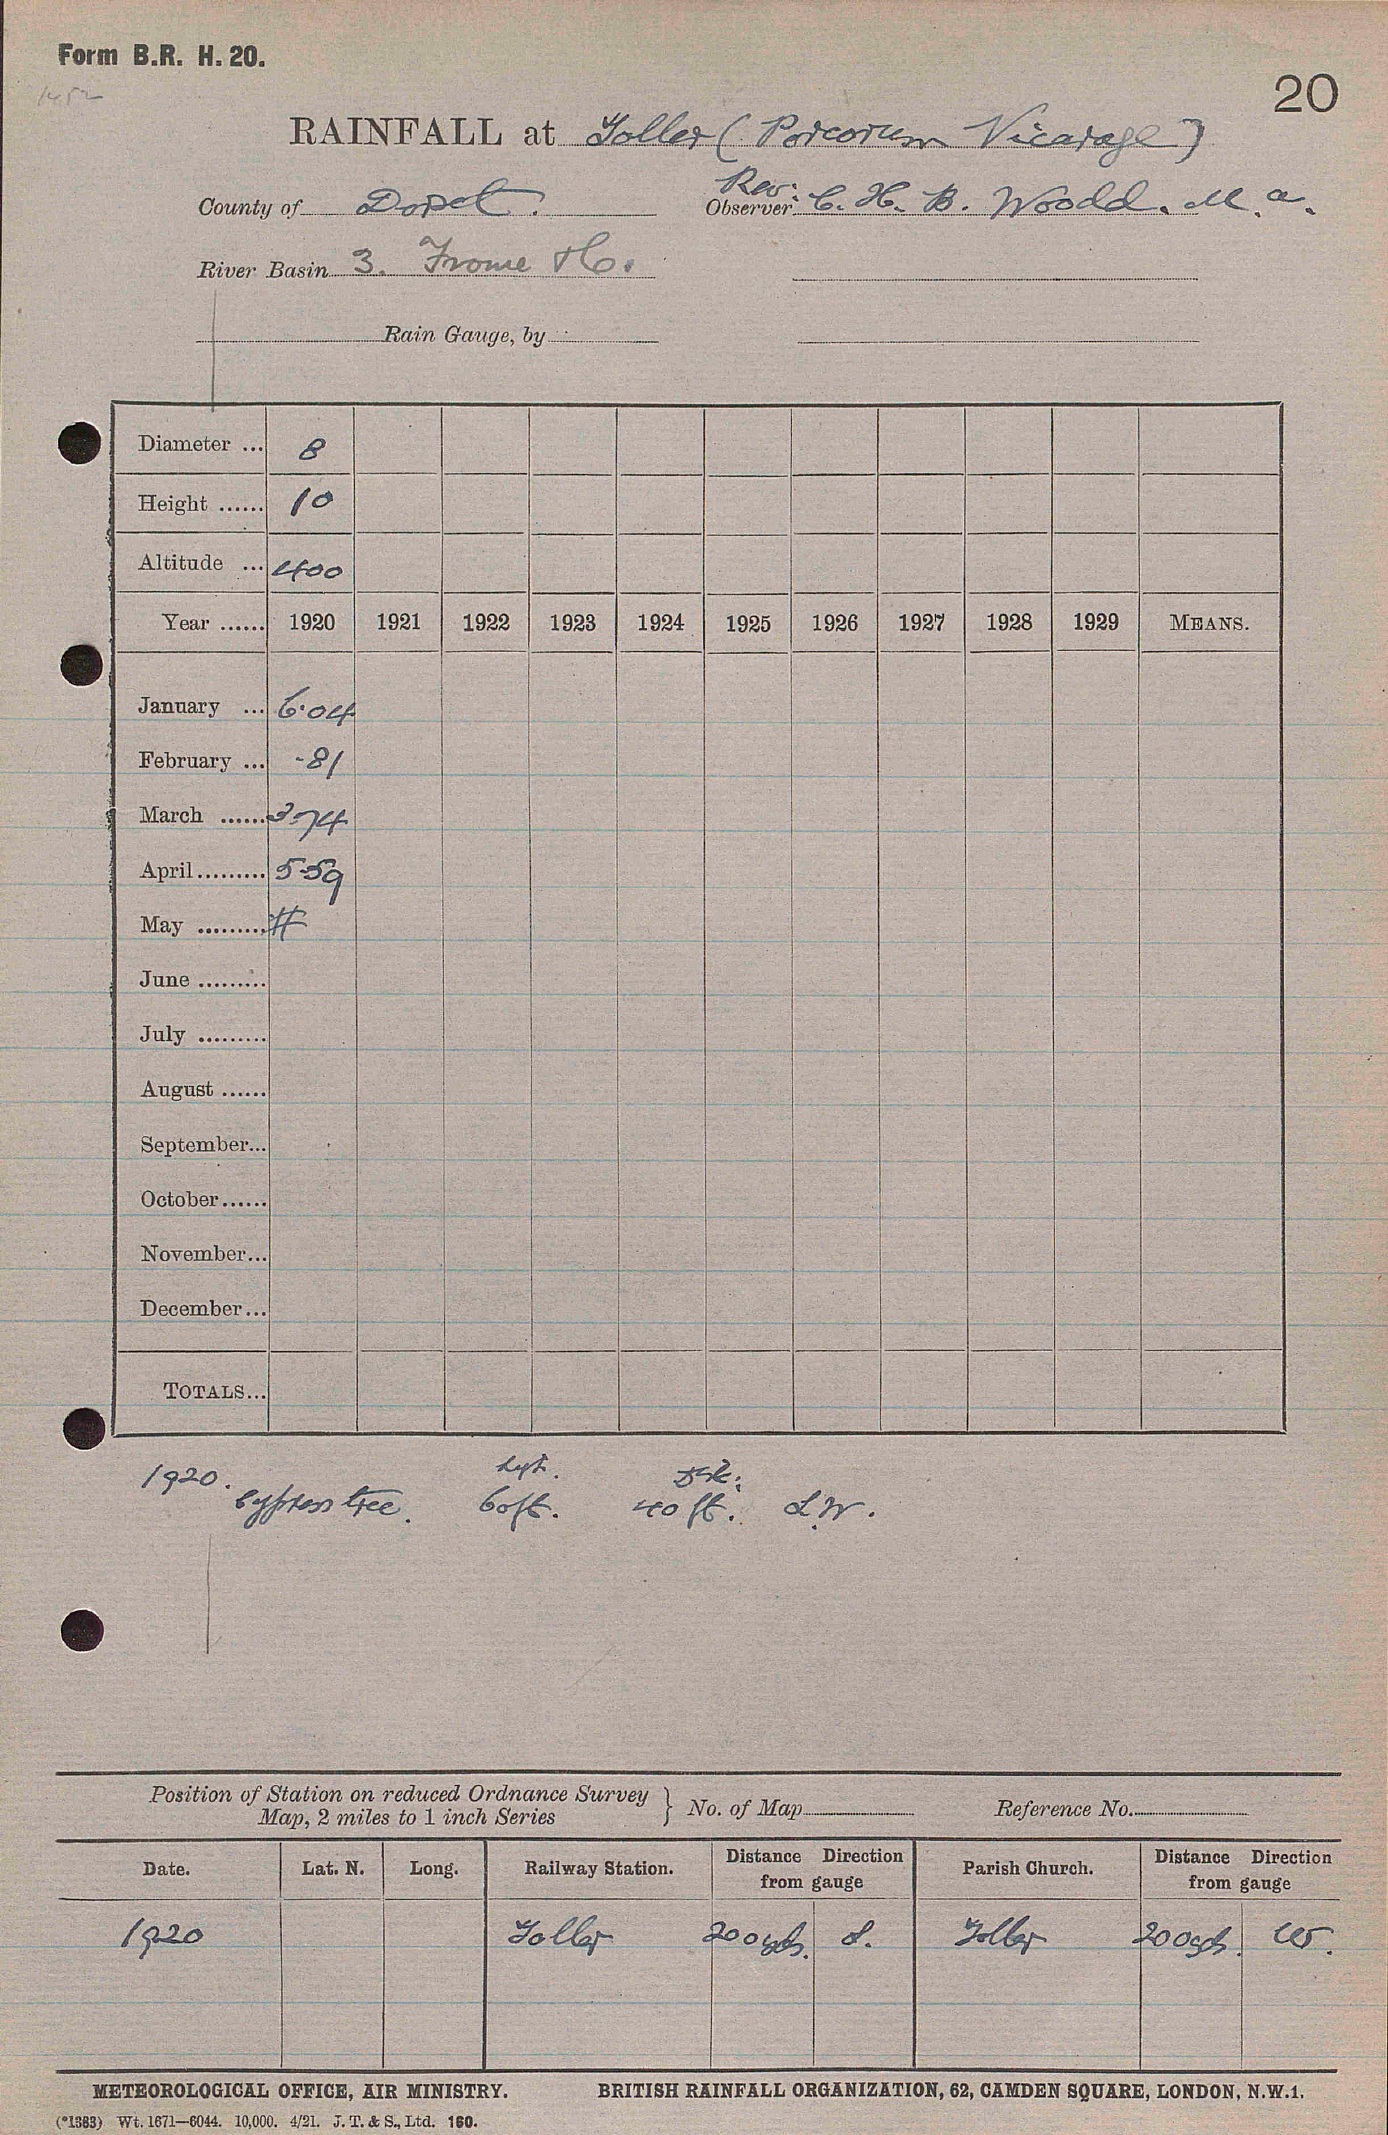 Form B.R. H. 20.
1452
20
RAINFALL at Toller (Porcorum Vicarage)
County of Dorset. Observer Rev: C. H. B. Woodd. M.a.
River Basin 3. Frome &c.
Rain Gauge, by
Diameter ... 8
Height ...... 10
Altitude ... 400
Year ...... 1920 1921 1922 1923 1924 1925 1926 1927 1928 1929 MEANS.
January ... 6.04
February ... .81
March ...... 3.74
April ......... 5.59
May ......... #
June .........
July .........
August ......
September...
October......
November...
December...
TOTALS...
1920. hgt. Dis:
Cypress tree. 60ft. 40 ft. S.W.
Position of Station on reduced Ordnance Survey
Map, 2 miles to 1 inch Series } No. of Map Reference No.
Date. Lat. N. Long. Railway Station. Distance Direction from gauge Parish Church. Distance Direction from gauge
1920 Toller 200yds. S. Toller 200yds. W.
METEOROLOGICAL OFFICE, AIR MINISTRY. BRITISH RAINFALL ORGANIZATION, 62, CAMDEN SQUARE, LONDON, N.W.1.
(*1383) Wt. 1671—6044. 10,000. 4/21. J. T. & S., Ltd. 160.